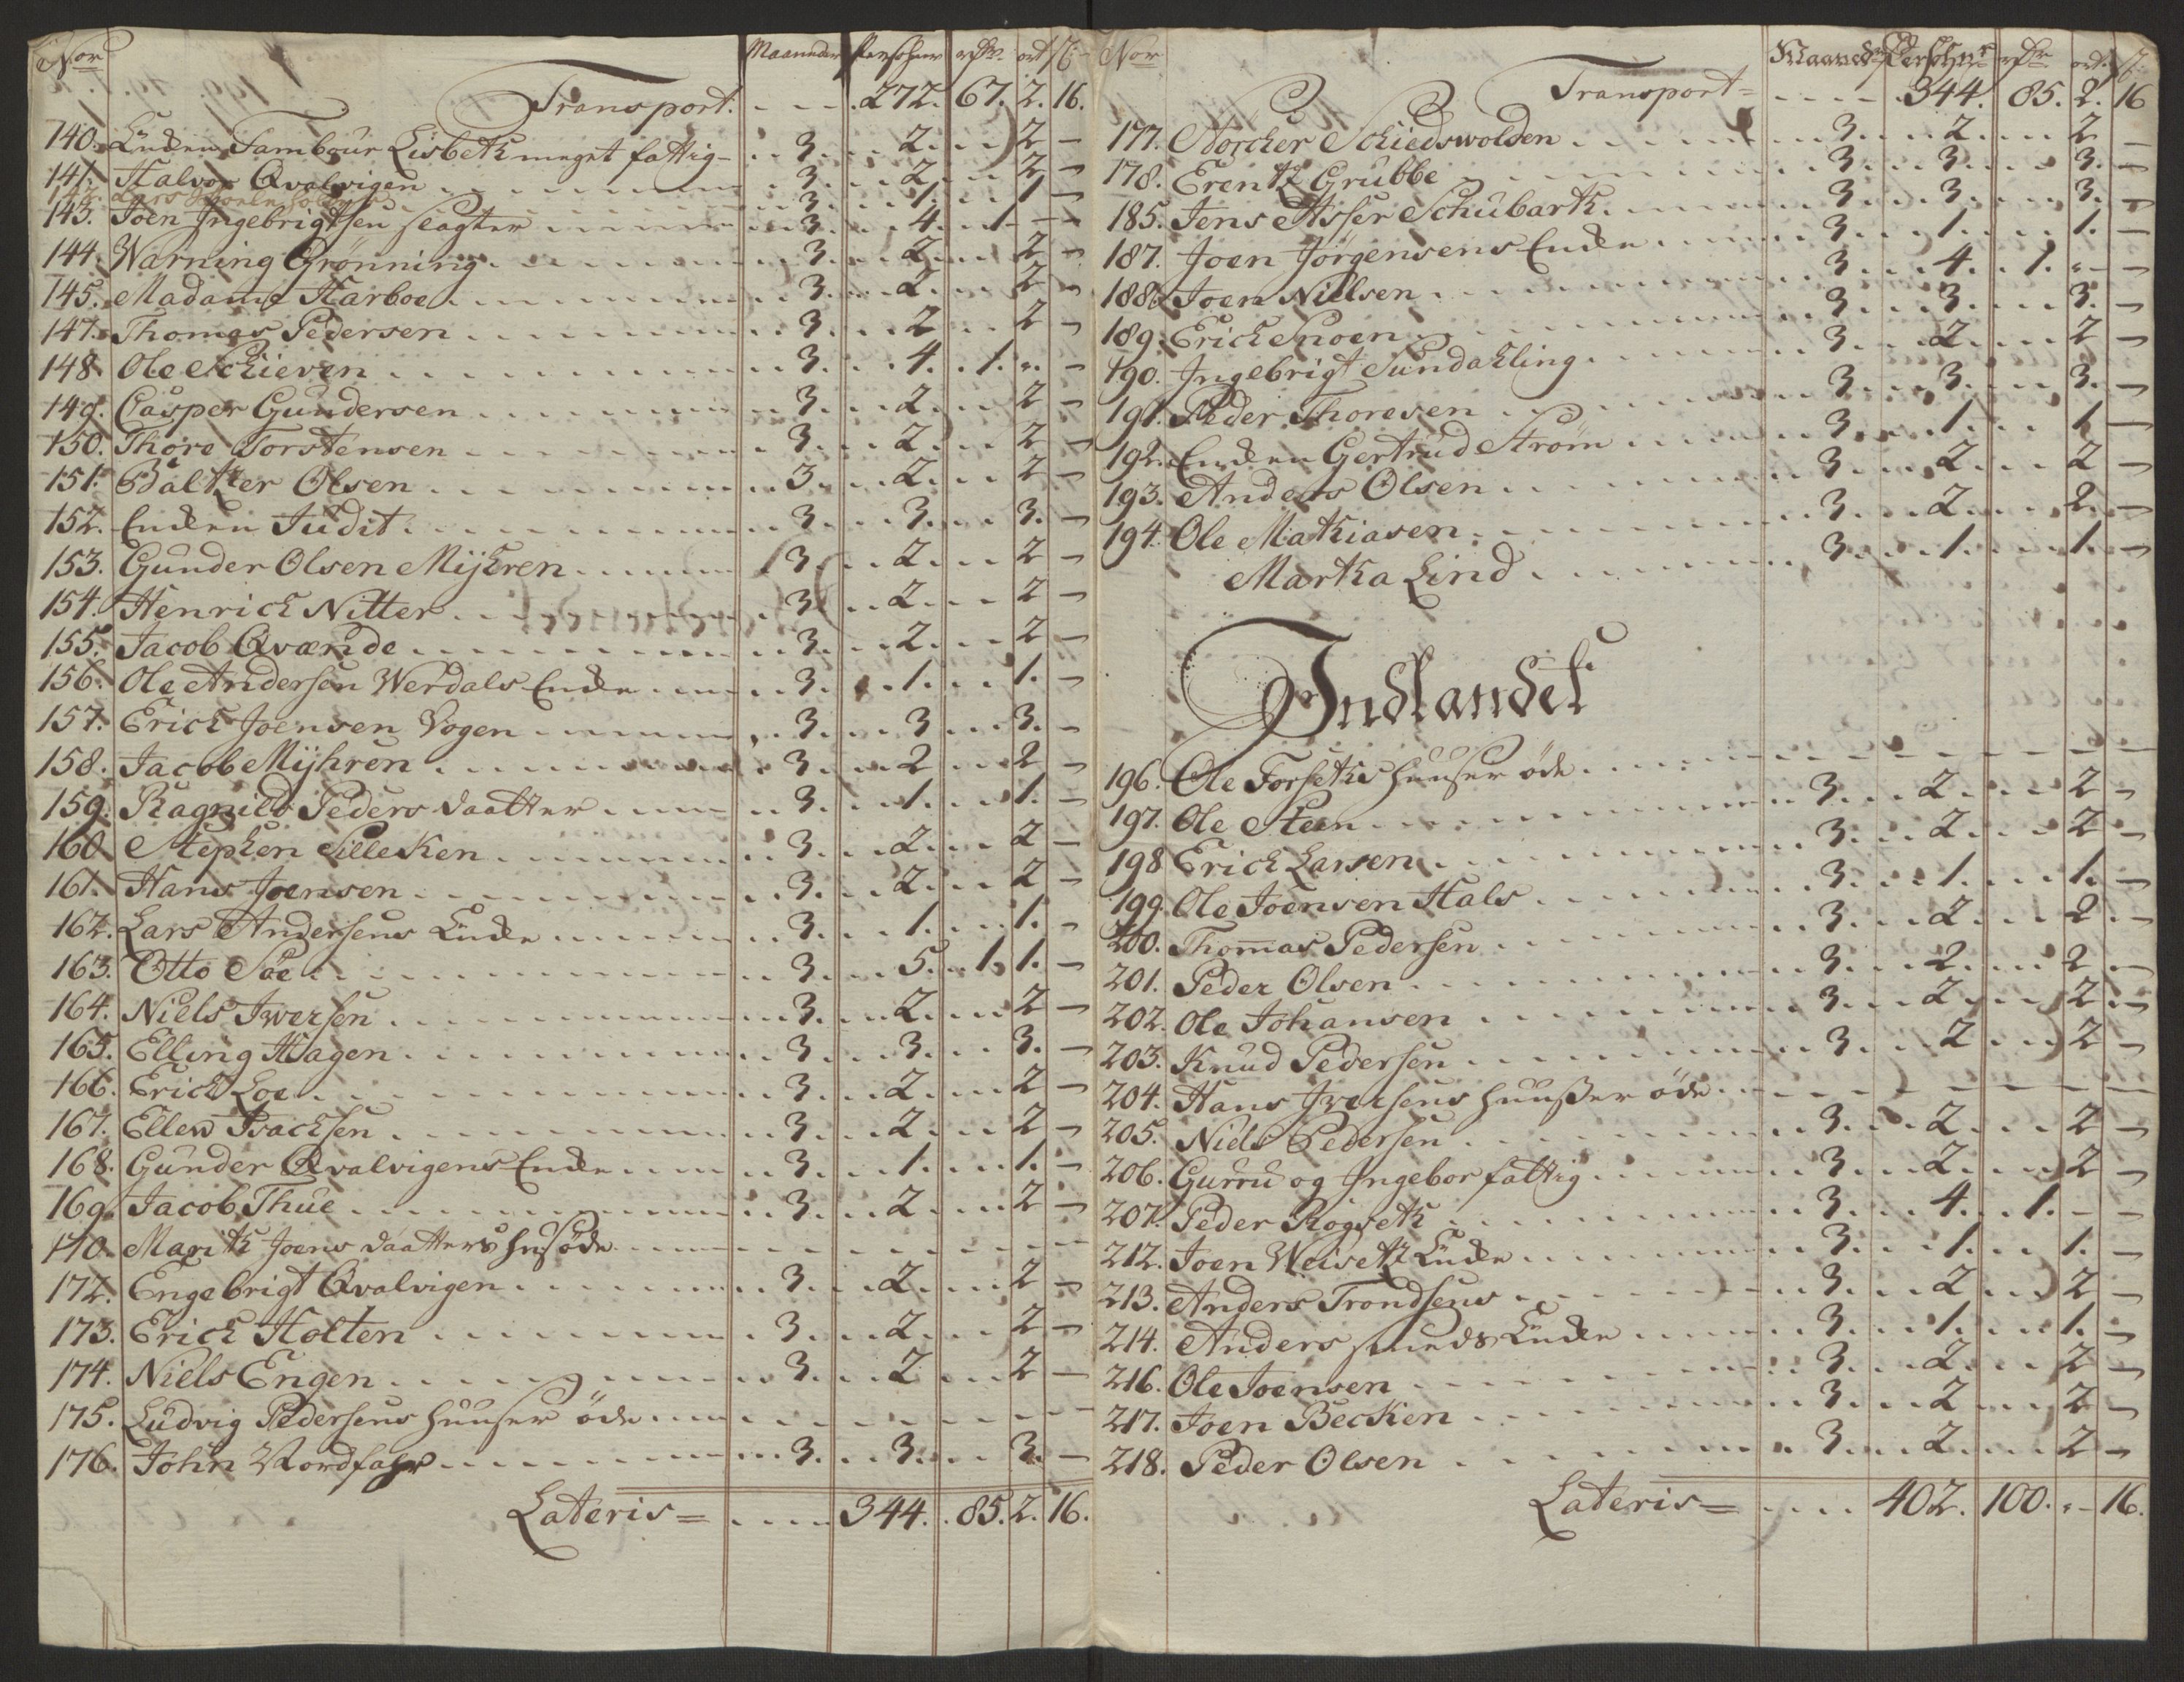 Nor Maaneder Persohner rdr ort s
Transport. 272. 67. 2. 16.
140. Enken Tambour Lisbeth meget fattig 3. 2. 2 -
141. Halvor Qvalvigen 3. 2. 2 -
142. Lars 3. 1. 1 -
143. Joen Ingebrigtsen slagter 3. 4. 1 - -
144. Warning Grönning 3. 2. 2 -
145. Madame Harboe 3. 2. 2 -
147. Thomas Pedersen 3. 2 2 -
148. Ole Schieven 3. 4. 1. " -
149. Casper Gundersen 3. 2 2 -
150. Thore Torstensen 3. 2. 2 -
151. Balther Olsen 3. 2. 2 -
152. Enken Judit 3. 3. 3. -
153. Gunder Olsen Mijhren 3. 2. 2 -
154. Henrich Nitter 3. 2. 2 -
155. Jacob Qværnde 3. 2. 2 -
156. Ole Andersen Werdals Enke 3. 1. 1. -
157. Erich Joensen Vogen 3. 3 3. -
158. Jacob Mijhren 3. 2 2 -
159. Ragnild Peders daatter 3. 1. 1. -
160. Stephen Silleken 3. 2. 2 -
161. Hans Joensen 3. 2. 2 -
162. Lars Andersens Enke 3. 1. 1. -
163. Otto Soe 3. 5. 1. 1. -
164. Niels Iversen 3. 2. 2 -
165. Elling Hagen 3. 3. 3. -
166. Erich Loe 3. 2. 2 -
167. Ellew Isachsen 3. 2. 2 -
168. Gunder Qvalvigens Enke 3. 1. 1. -
169. Jacob Thue 3. 2 2 -
170. Marith Joens daatters huus öde
172. Engebrigt Qvalvigen 3. 2. 2 -
173. Erich Holten 3. 2. 2 -
174. Niels Engen 3. 2 2 -
175. Ludvig Pedersens huuser öde
176. John Nordfahr 3. 3. 3. -
Lateris = 344. 85. 2. 16.
Nor Maaneder Persohnr rdr ort s
Transport = 344. 85. 2. 16
177. Norcher Schiedswolden 3. 2. 2 -
178. Erenth Grubbe 3. 3. 3. -
185. Jens Asser Schubarth 3. 3. 3. -
187. Joen Jörgensens Enke 3. 1. 1. -
188. Joen Nielsen 3. 4. 1. " -
189. Erich Snoen 3. 3. 3. -
190. Ingebrigt Sundahling 3. 2. 2 -
191. Peder Thoresen 3. 3. 3. -
192. Enken Gertrud Ström 3. 1. 1 -
193. Anders Olsen 3. 2 2 -
194. Ole Mathiasen 3. 2. 2. -
Martha Lind 3. 1. 1. -
Indlandet
196. Ole Forseths huuser öde
197. Ole Steen 3. 2. 2 -
198 Erich Larsen 3. 2. 2. -
199. Ole Joensen Hals 3. 1. 1. -
200. Thomas Pedersen 3. 2. 2. -
201. Peder Olsen 3. 2. 2 -
202. Ole Johansen 3. 2. 2. -
203. Knud Pedersen 3. 2 2 -
204. Hans Iversens huusser öde
205. Niels Pedersen 3. 2. 2 -
206. Gurru og Ingebor fattig 3. 2. 2 -
207. Peder Rogseth 3. 4. 1. - -
212. Joen Weiseth Enke 3. 1. 1. -
213. Anders Trondsens 3. 2 2 -
214. Anders Enke 3. 1. 1. -
216. Ole Joensen 3. 2. 2 -
217. Joen Becken 3. 2 2 -
218. Peder Olsen 3. 2. 2 -
Lateris = 402. 100. " - 16.